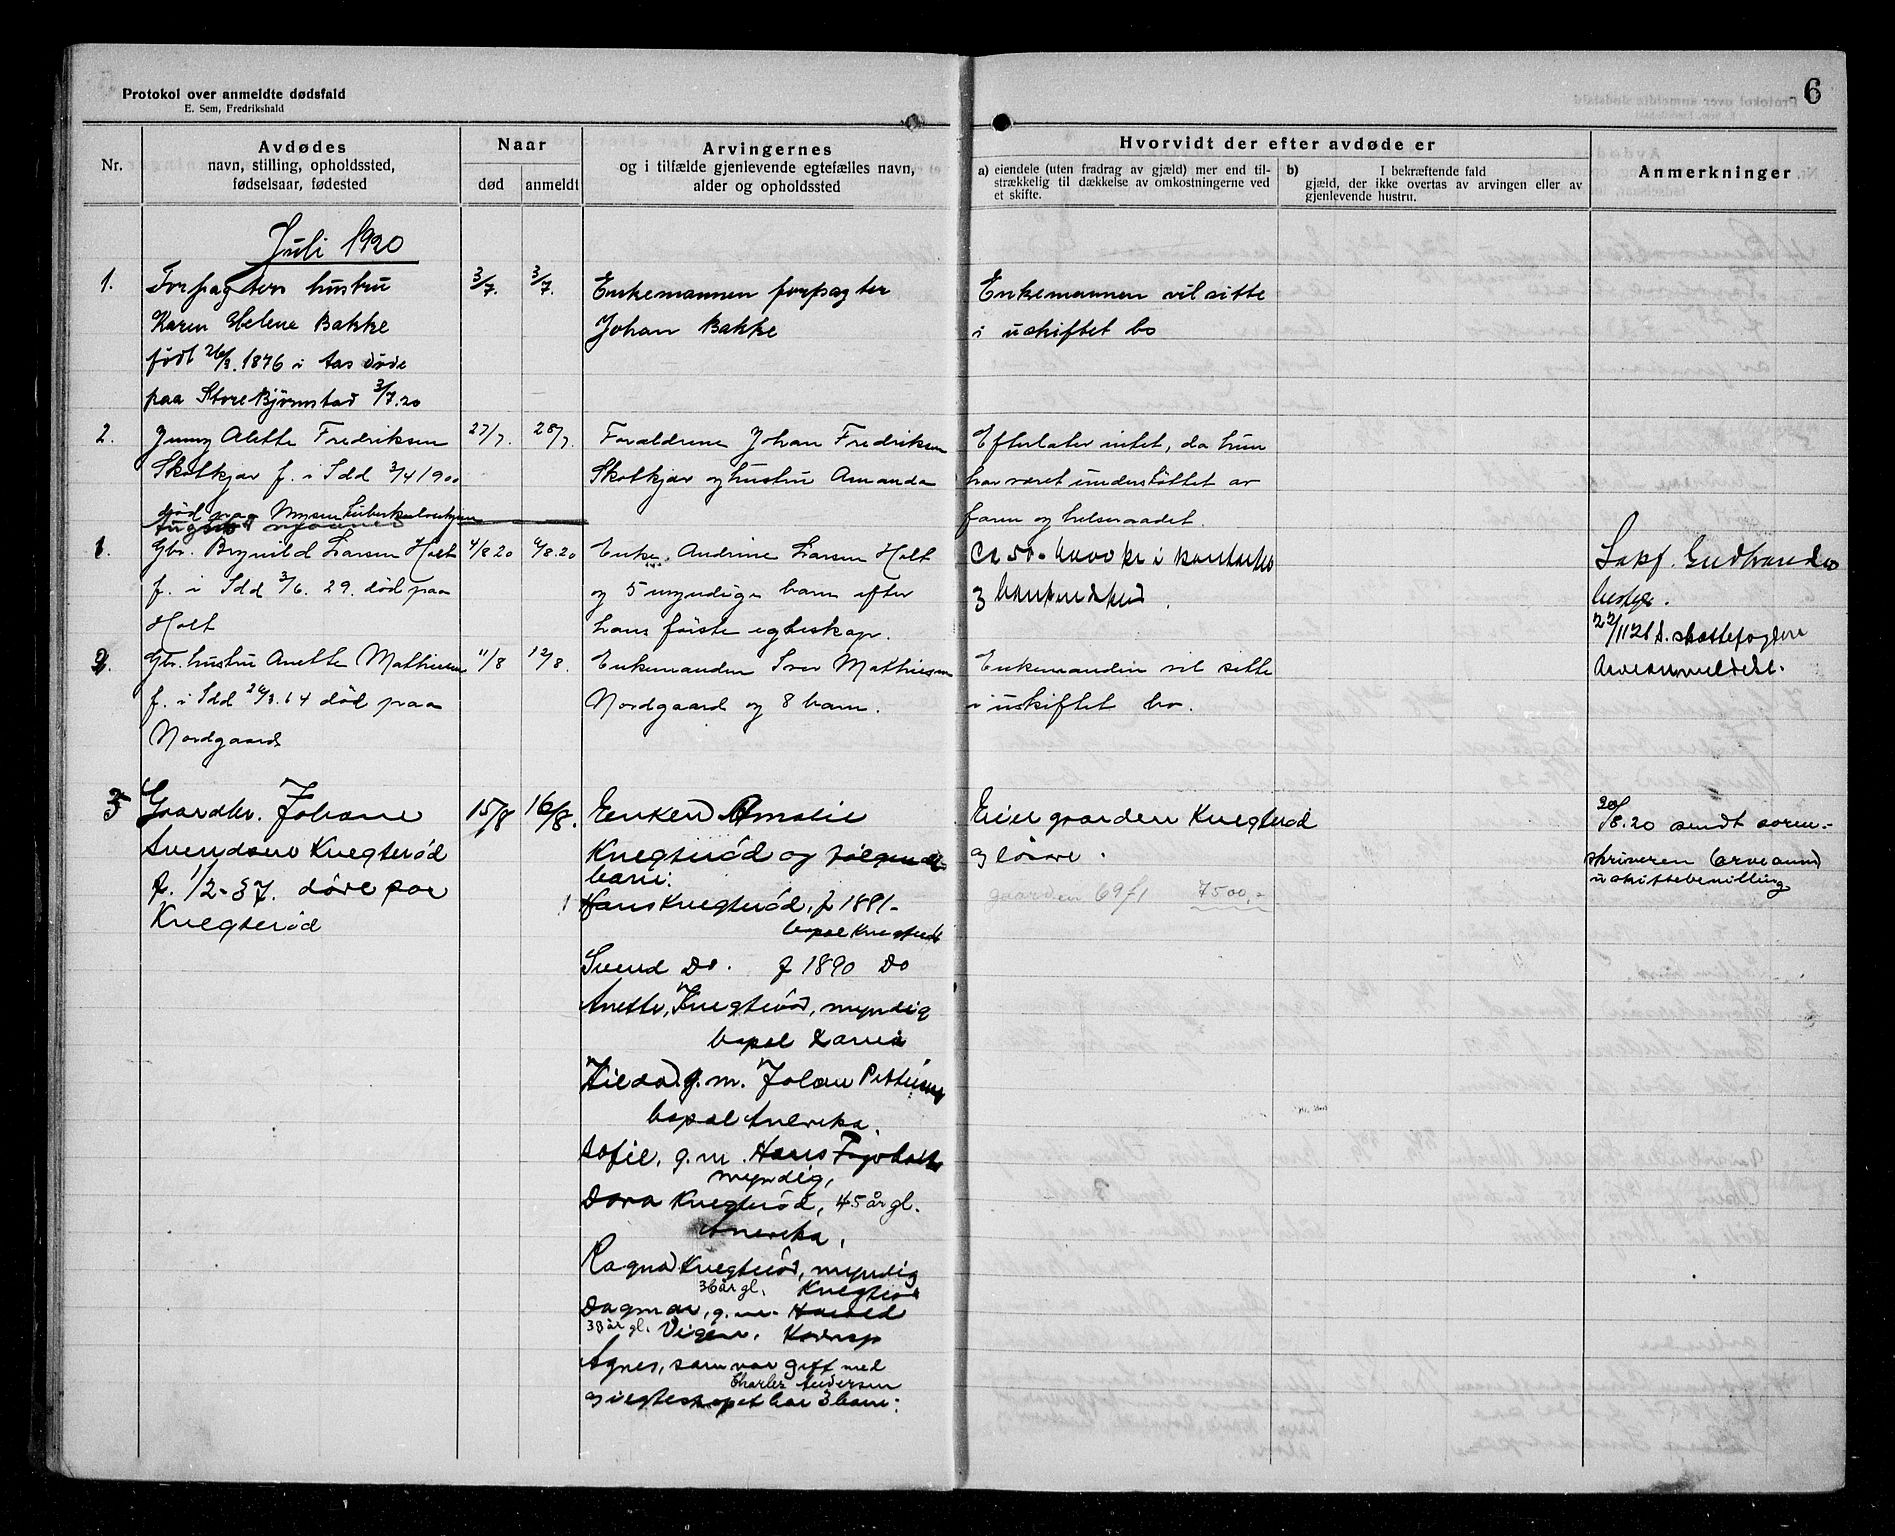 Protokol over anmeldte dødsfald
E. Sem, Fredrikshald
6
Nr.
Avdødes
navn, stilling, opholdssted,
fødselsaar, fødested
Naar
død
anmeldt
Arvingernes
og i tilfælde gjenlevende egtefælles navn,
alder og opholdssted
Hvorvidt der efter avdøde er
a) eiendele (uten fradrag av gjæld) mer end til-
strækkelig til dækkelse av omkostningerne ved
et skifte.
b) I bekræftende fald
gjæld, der ikke overtas av arvingen eller av
gjenlevende hustru.
Anmerkninger.
Juli 1920
1.
Forpagters hustru
Karen Helene Bakke
født 26/3. 1876 i Aas døde
paa Store Bjørnstad 3/7.20
3/7.
3/7.
Enkemannen forpagter
Johan Bakke
Enkemannen vil sitte
i uskiftet bo
2.
Jenny Alette Fredriksen
Skotkjær f. i Idd 3/4 1900
død paa Mysen
27/7.
28/7
Forældrene Johan Fredriksen
Skotkjær og hustru Amanda
Efterlater intet, da hun
har været understøttet av
faren og helseraadet.
August
1.
Gbr. Brynild Larsen Holt
f. i Idd 3/6. 29. død paa
Holt
4/8 20
6/8.20
Enke Andrine Larsen Holt
og 5 myndige barn efter
hans første egteskap.
Ca 50-
22/11 21
2.
Gbr. hustru Anette Mathisen
f. i Idd 26/3.64 død paa
Nordgaard
11/8
12/8.
Enkemanden Iver Mathisen
Nordgaard og 8 barn.
Enkemanden vil sitte
i uskiftet bo.
3
Gaardbr. Johan
Svendsen Knegterød
f. 1/2-37. døde paa
Knegterød
15/8
16/8.
Enken Amalie
Knegterød og følgende
barn:
1 Hans Knegterød, f 1881-
bopæl Knegterød
Svend Do. f 1890 Do
Anette, Knegterød, myndig
bopæl
Hilda g.m. Johan
bopæl Amerika.
Sofie, g.m. Hans
myndig,
Dora Knegterød, 45 år gl.
Amerika.
Ragna Knegterød, myndig
36 år gl. Knegterød
Dagmar, g.m. Harald
38 år gl.
Agnes, som var gift med
Charles Andersen
og i egteskapet har 3 barn.
Eier gaarden Knegterød
og løsøre.
gaarden 69/1 7500,-
20/8.20 sendt soren-
skriveren (arveanm)
uskiftebevilling